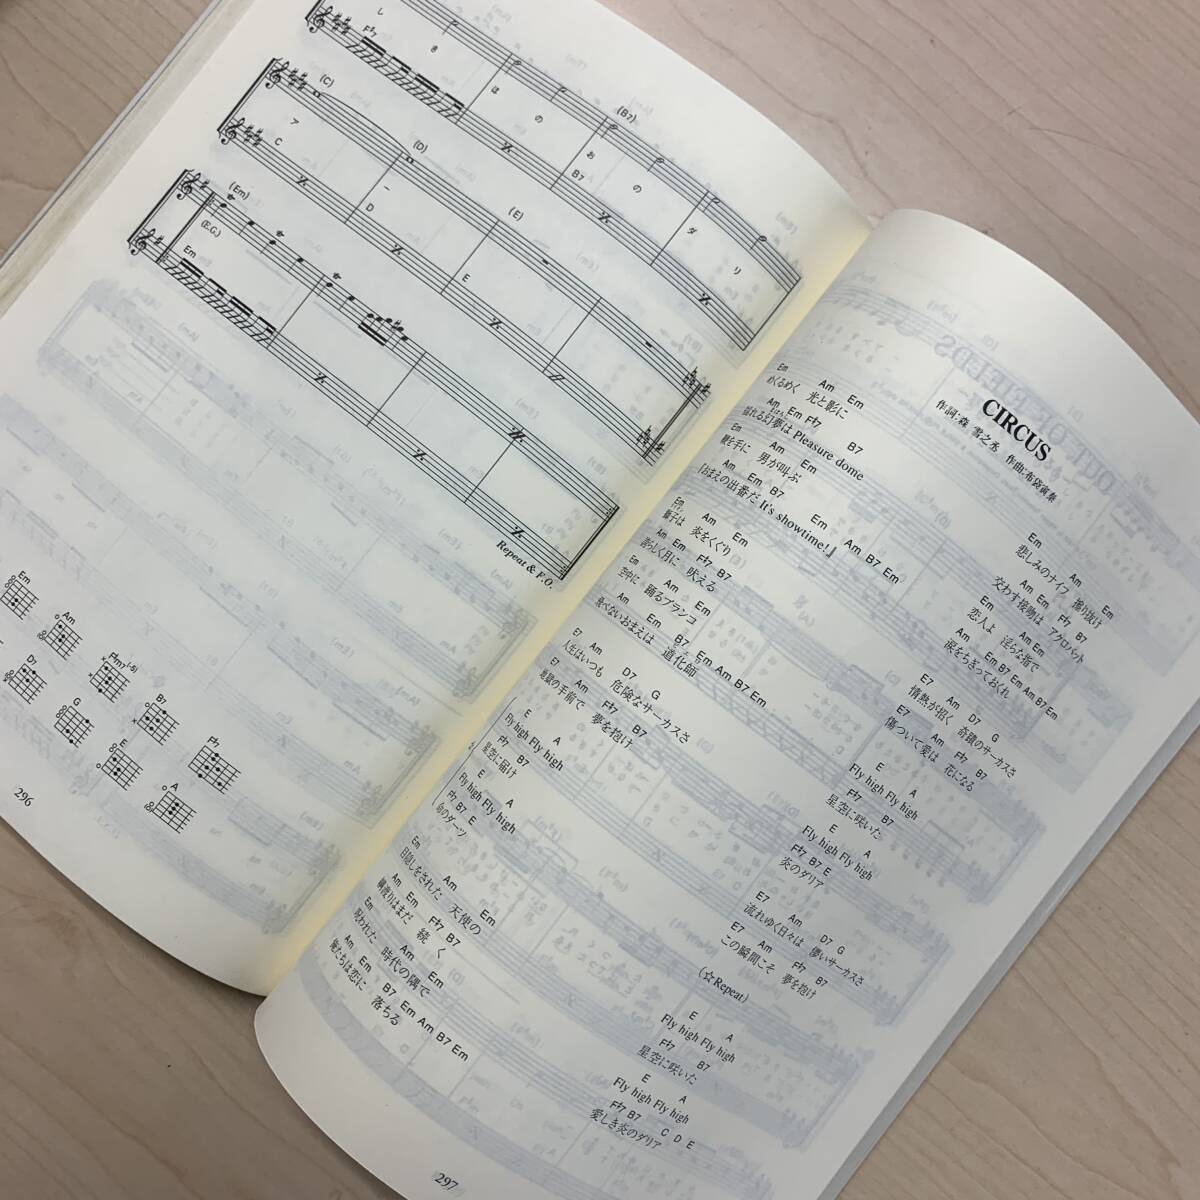 し き は の お の ダ リ
F#7 (B7) B7
(C) (D) (E)
ア ー
C D E
(Em)
(E.G.)
Em
Repeat & F.O.
Em Am F#m7(-5) B7 F#7
D7 G E A
296
CIRCUS
作詞:森 雪之丞 作曲:布袋寅泰
Em Am Em
めくるめく 光と影に
Am Em F#7 B7
揺れる幻夢は Pleasure dome
Em Am Em
鞭を手に 男が叫ぶ
Am Em B7 Em Am B7 Em
『おまえの出番だ It's showtime!』
Em Am Em
獅子は 炎をくぐり
Am Em F#7 B7
誇らしく月に 吠える
Em Am Em
空中に 踊るブランコ
Am Em B7 Em Am B7 Em
飛べないおまえは 道化師
E7 Am D7 G
人生はいつも 危険なサーカスさ
E7 Am F#7 B7
絶望の手前で 夢を抱け
E A
Fly high Fly high
F#7 B7
星空に届け
E A
Fly high Fly high
F#7 B7 E
命のダーツ
Em Am Em
目隠しをされた 天使の
Am Em F#7 B7
綱渡りはまだ 続く
Em Am Em
呪われた 時代の隅で
Am Em B7 Em Am B7 Em
俺たちは恋に 落ちる
Em Am Em
悲しみのナイフ 擦り抜け
Am Em F#7 B7
交わす接吻は アクロバット
Em Am Em
恋人よ 淫らな指で
Am Em B7 Em Am B7 Em
涙をちぎっておくれ
E7 Am D7 G
情熱が招く 奇蹟のサーカスさ
E7 Am F#7 B7
傷ついて愛は 花になる
E A
Fly high Fly high
F#7 B7
星空に咲いた
E A
Fly high Fly high
F#7 B7 E
炎のダリア
E7 Am D7 G
流れゆく日々は 儚いサーカスさ
E7 Am F#7 B7
この瞬間こそ 夢を抱け
(☆Repeat)
E A
Fly high Fly high
F#7 B7
星空に咲いた
E A
Fly high Fly high
F#7 B7 C D E
愛しき炎のダリア
297